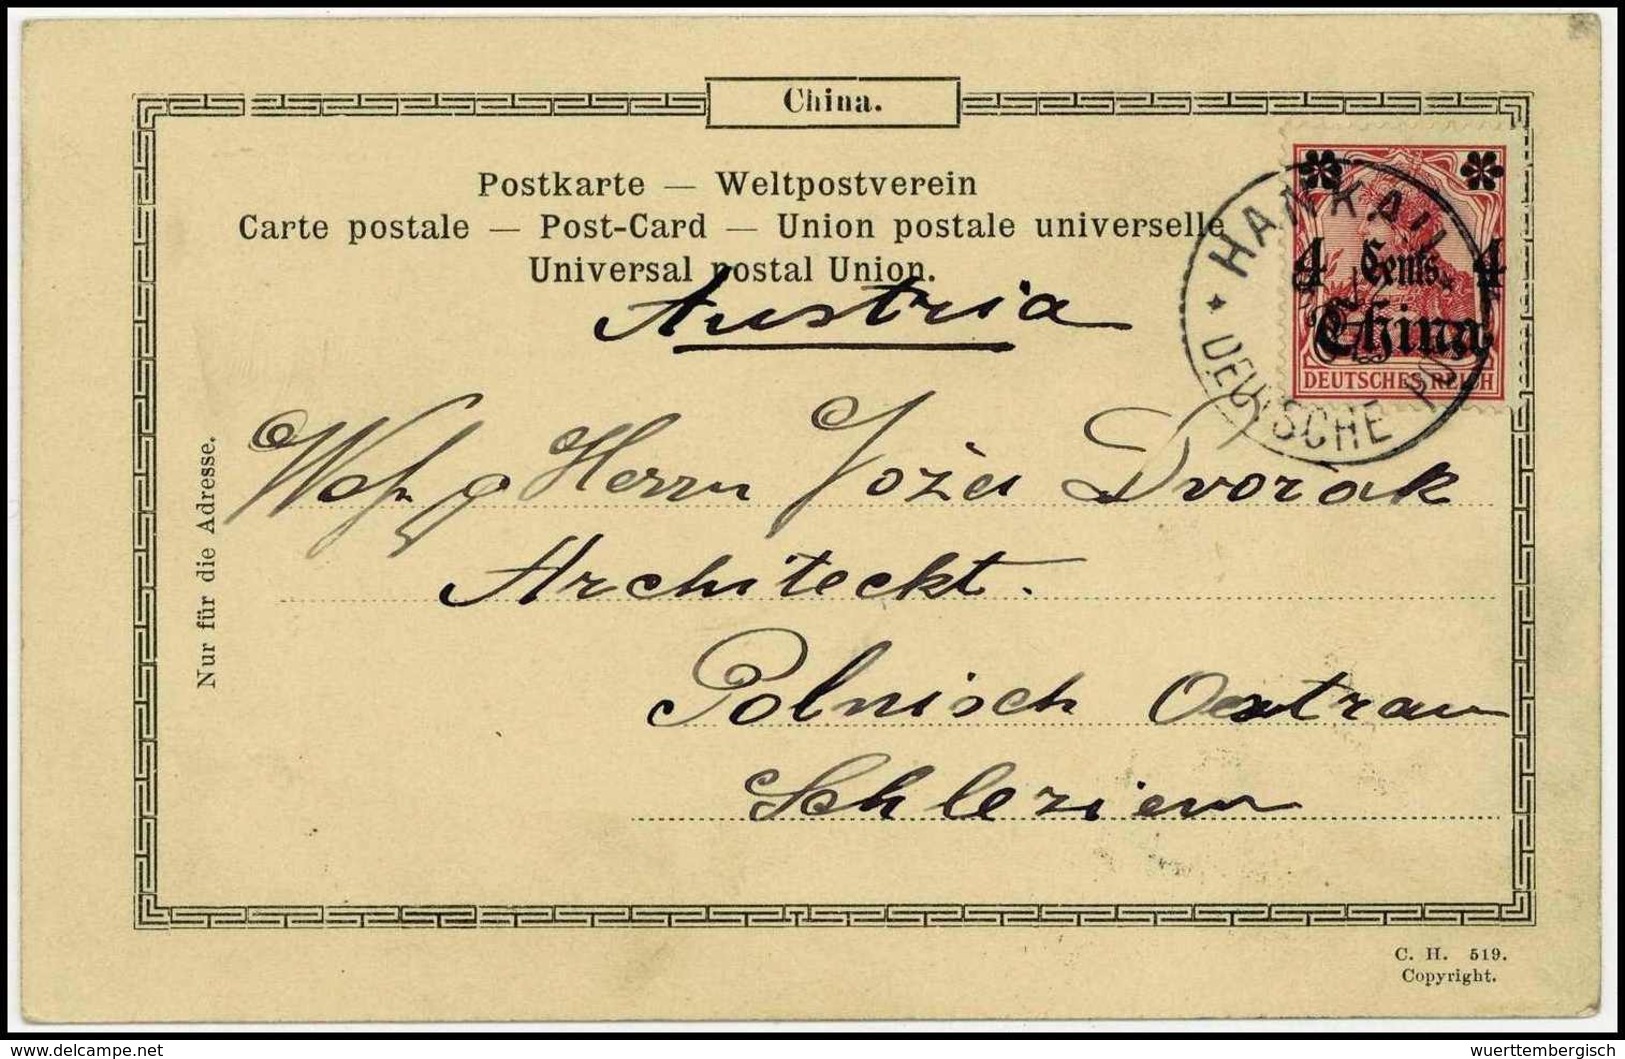 China.
Postkarte — Weltpostverein
Carte postale — Post-Card — Union postale universelle
Universal postal Union.
HANKAU
4 Cents 4
China
DEUTSCHES REICH
DEUTSCHE POST
Austria
Herrn Dvorak
Architeckt.
Polnisch Oestrau
Schlezien
Nur für die Adresse.
C. H. 519.
Copyright.
delcampe.net
wuerttembergisch